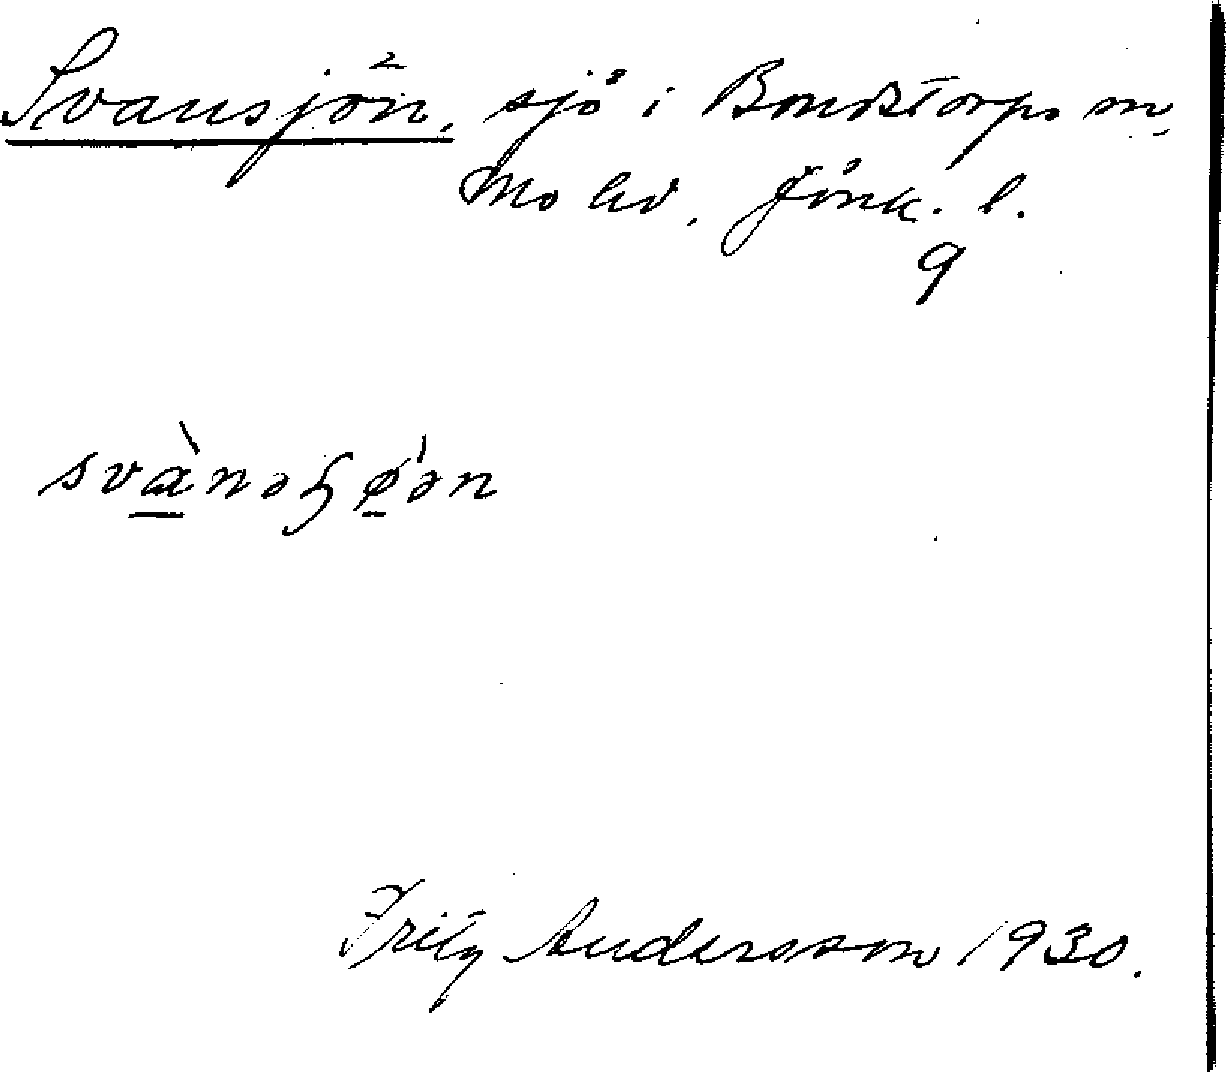 Svansjön, sjö i Bondstorps sn
Mo hd. Jönk. l.
9
svànəɧǿən
Fritz Andersson 1930.